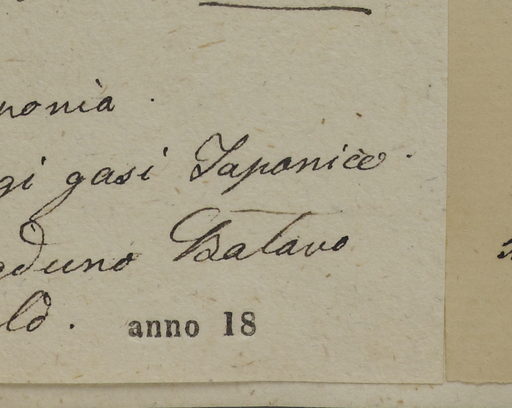 ponia.
gi gasi Japonice.
gduno Batavo
ld.
anno 18